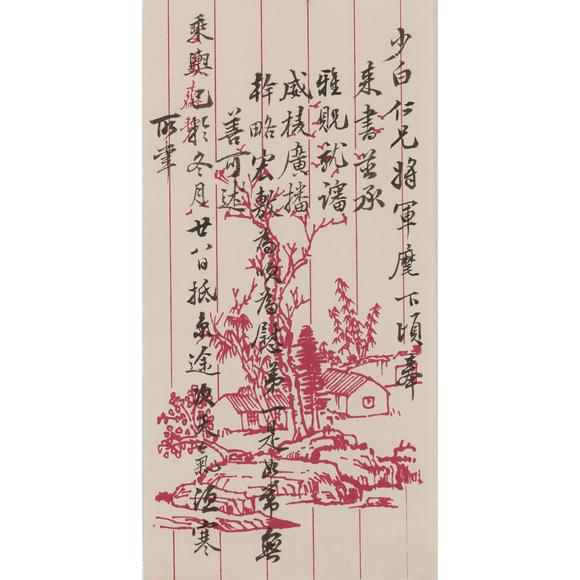 少白仁兄將軍麾下頃奉
来書並承
雅貺就讅
威棱廣播
幹略宏敷為頌為慰弟一是如常無
善可述
乘輿已於冬月廿八日抵京途次天氣沍寒
所幸